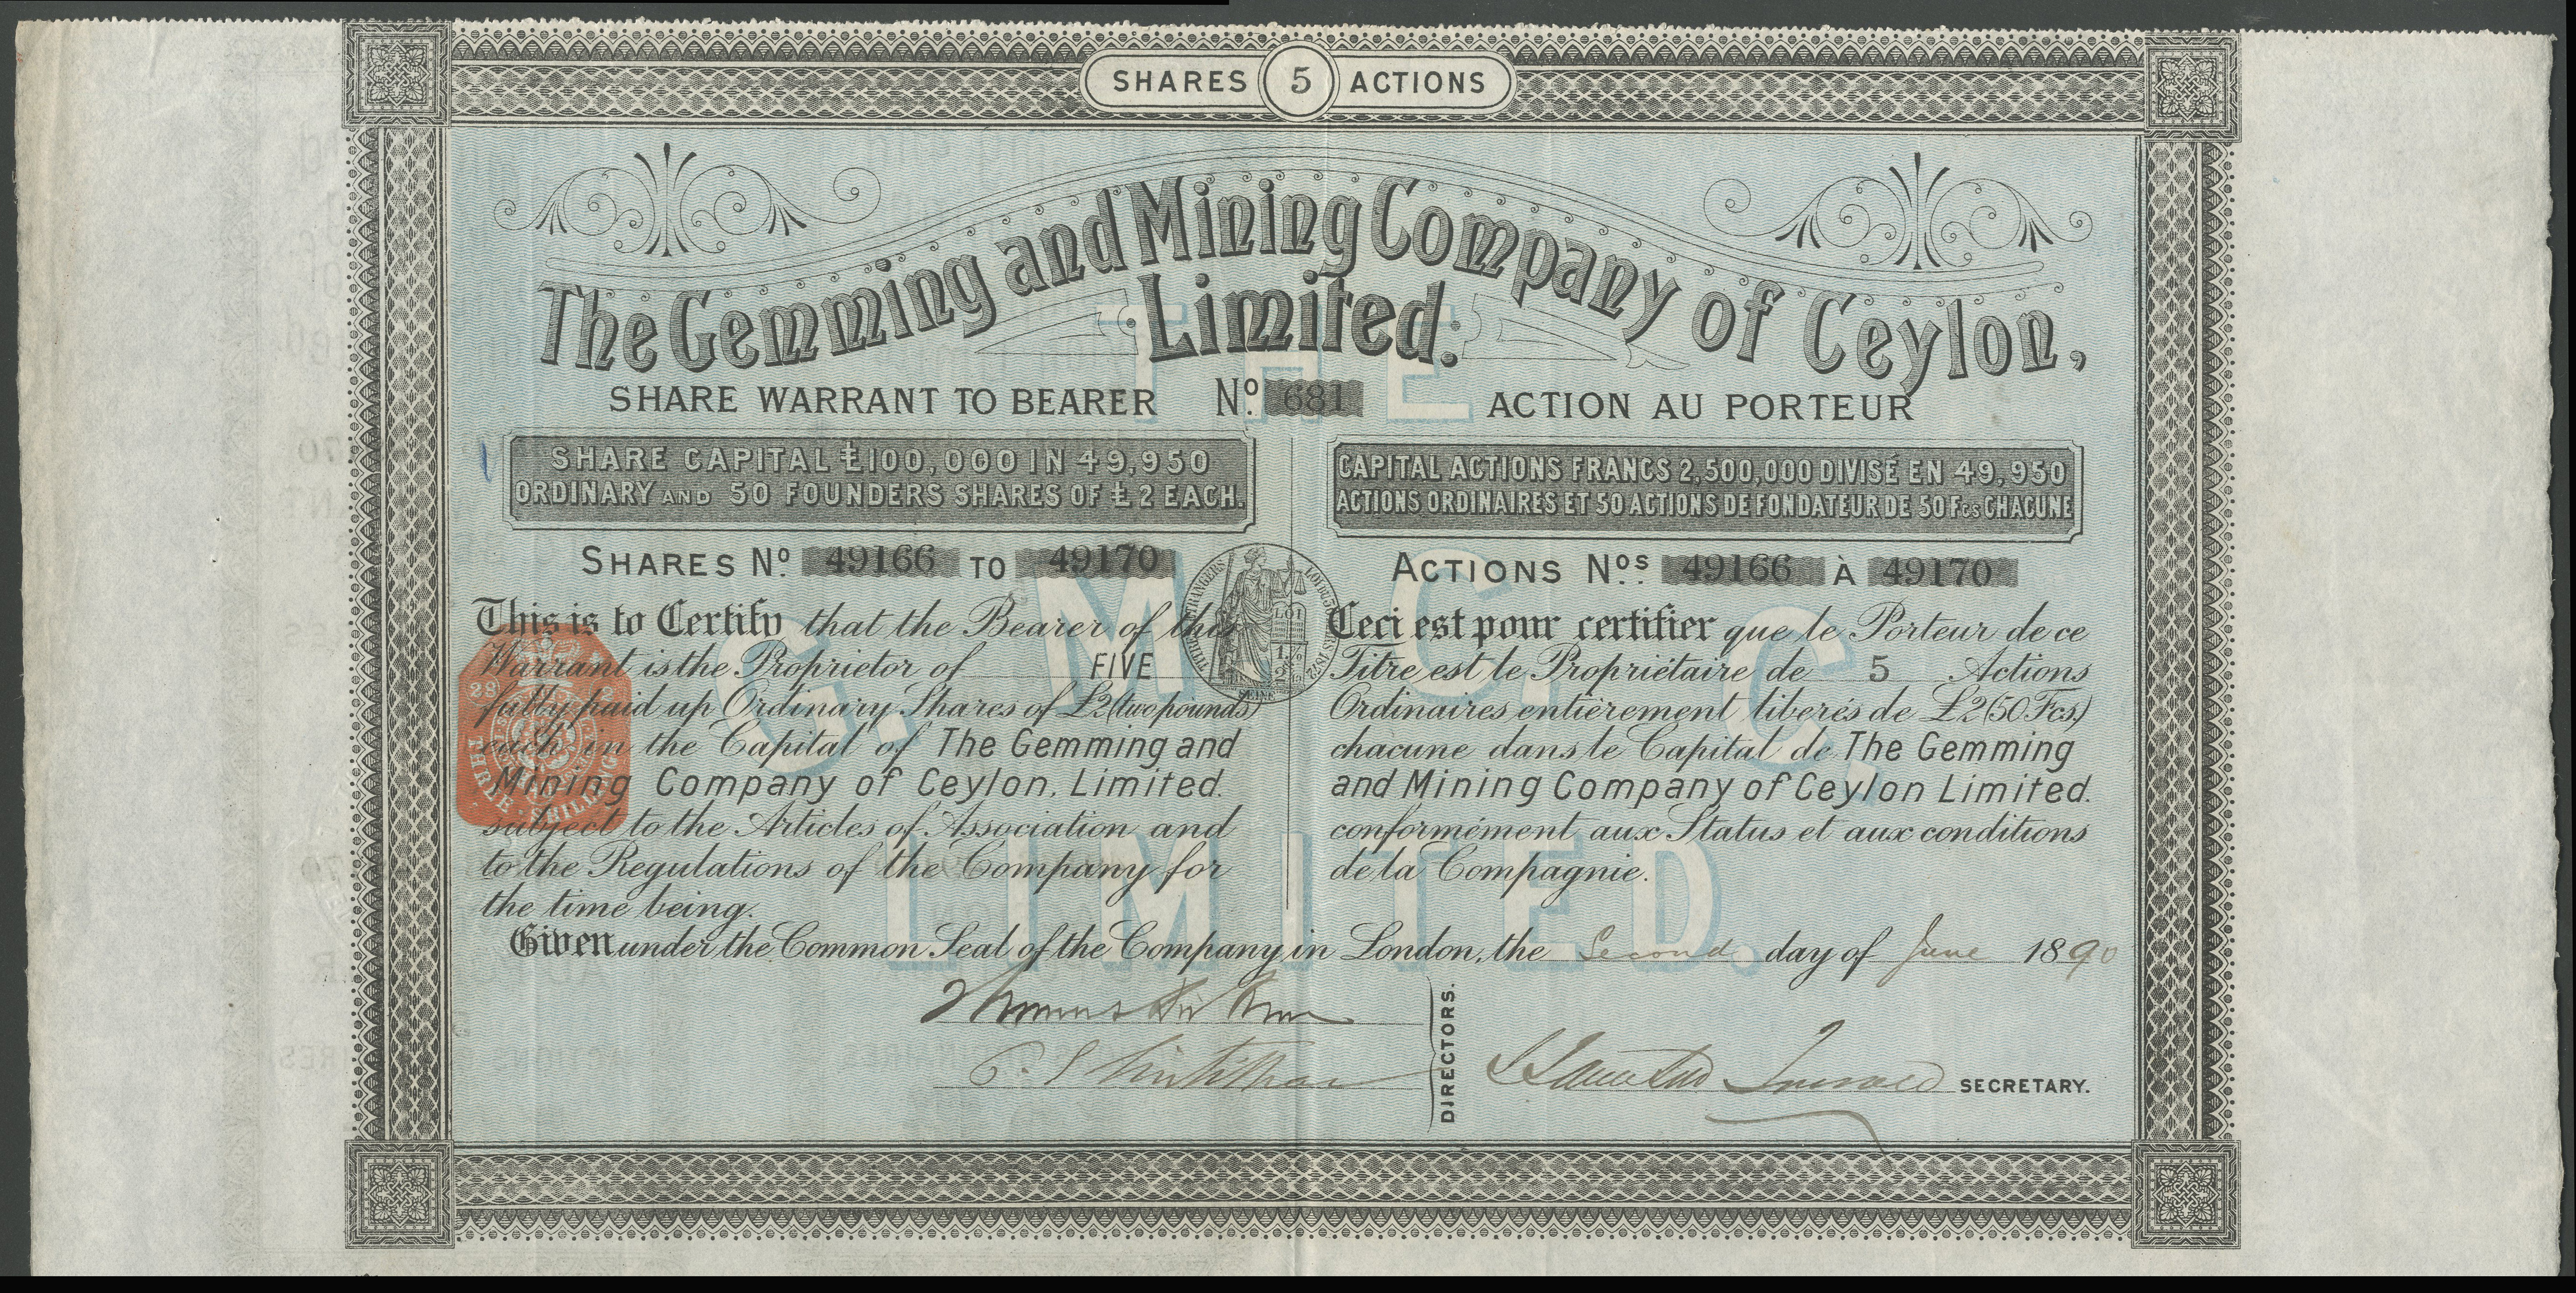 SHARES 5 ACTIONS
The Gemming and Mining Company of Ceylon,
Limited.
SHARE WARRANT TO BEARER Nº 681 ACTION AU PORTEUR
SHARE CAPITAL £100,000 IN 49,950
ORDINARY AND 50 FOUNDERS SHARES OF £2 EACH.
CAPITAL ACTIONS FRANCS 2,500,000 DIVISÉ EN 49,950
ACTIONS ORDINAIRES ET 50 ACTIONS DE FONDATEUR DE 50 Fcs CHACUNE
SHARES Nº 49166 TO 49170
ACTIONS Nos 49166 À 49170
This is to Certify that the Bearer of this
Warrant is the Proprietor of FIVE
fully paid up Ordinary Shares of £2 (two pounds)
each in the Capital of The Gemming and
Mining Company of Ceylon, Limited.
subject to the Articles of Association and
to the Regulations of the Company for
the time being.
Ceci est pour certifier que le Porteur de ce
Titre est le Propriétaire de 5 Actions
Ordinaires entièrement liberés de £2 (50 Fcs)
chacune dans le Capital de The Gemming
and Mining Company of Ceylon Limited.
conformément aux Status et aux conditions
de la Compagnie.
Given under the Common Seal of the Company in London, the Second day of June 1890
DIRECTORS.
SECRETARY.
THE
G. M. C. C.
LIMITED.
LOI
SEINE
THREE SHILLINGS